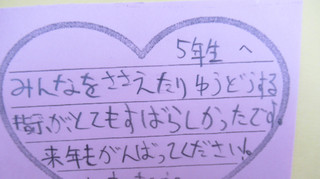 5年生へ
みんなをささえたりゆうどうする
がとてもすばらしかったです。
来年もがんばってください!。